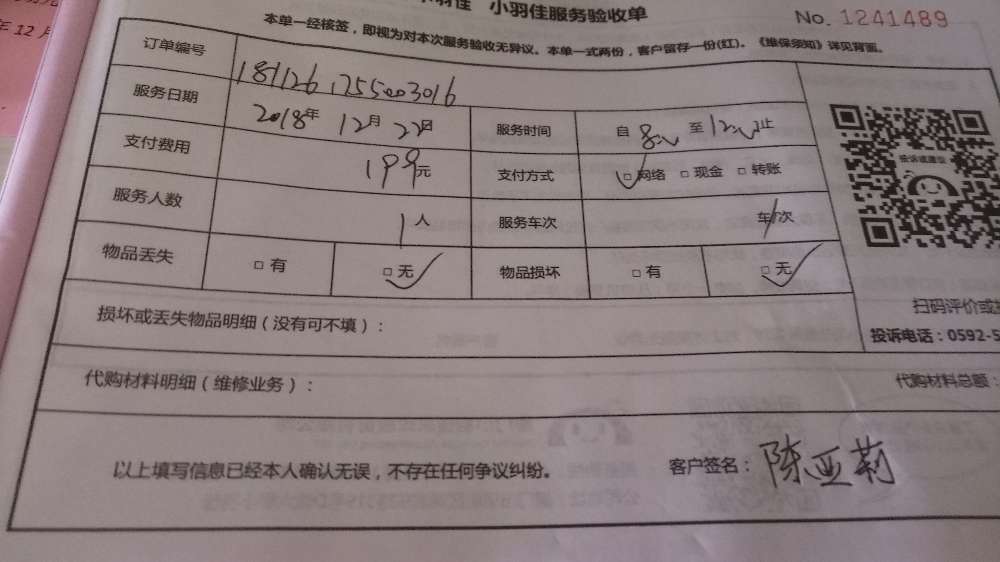 小羽佳服务验收单
No. 1241489
本单一经核签，即视为对本次服务验收无异议。本单一式两份，客户留存一份(红)。《维保须知》详见背面。
年12月
订单编号 181126125003016
服务日期 2018年 12月 22日 服务时间 自 8 至 12 止
支付费用 199元 支付方式 □网络 □现金 □转账
服务人数 1人 服务车次 车/次
物品丢失 □有 □无 物品损坏 □有 □无
投诉或建议
扫码评价或
投诉电话：0592-5
损坏或丢失物品明细（没有可不填）：
代购材料明细（维修业务）： 代购材料总额：
以上填写信息已经本人确认无误，不存在任何争议纠纷。 客户签名：陈亚莉